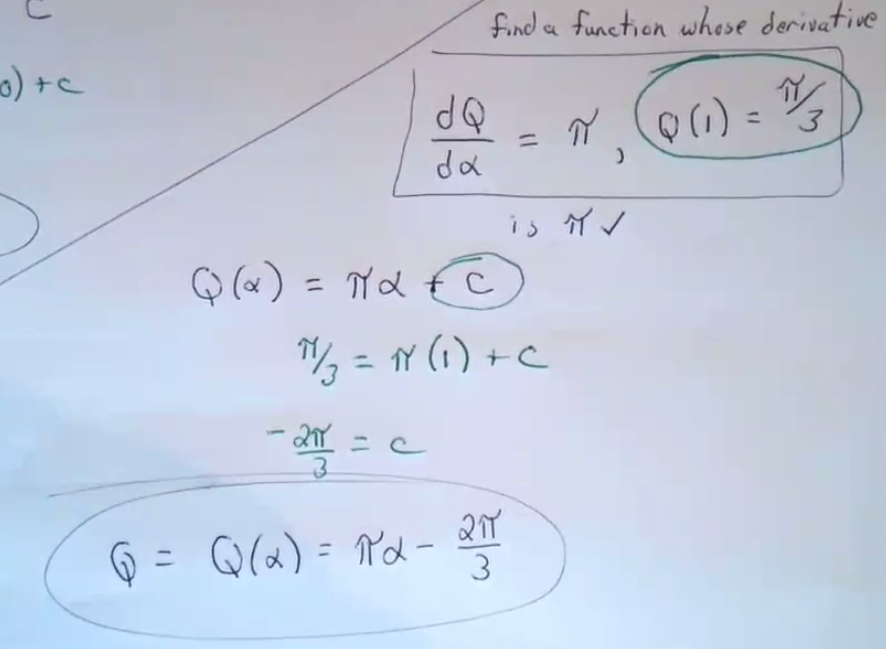 C
0) + C
find a function whose derivative
dQ/dα = π, Q(1) = π/3
is π ✓
Q(α) = πα + C
π/3 = π(1) + C
-2π/3 = C
Q = Q(α) = πα - 2π/3